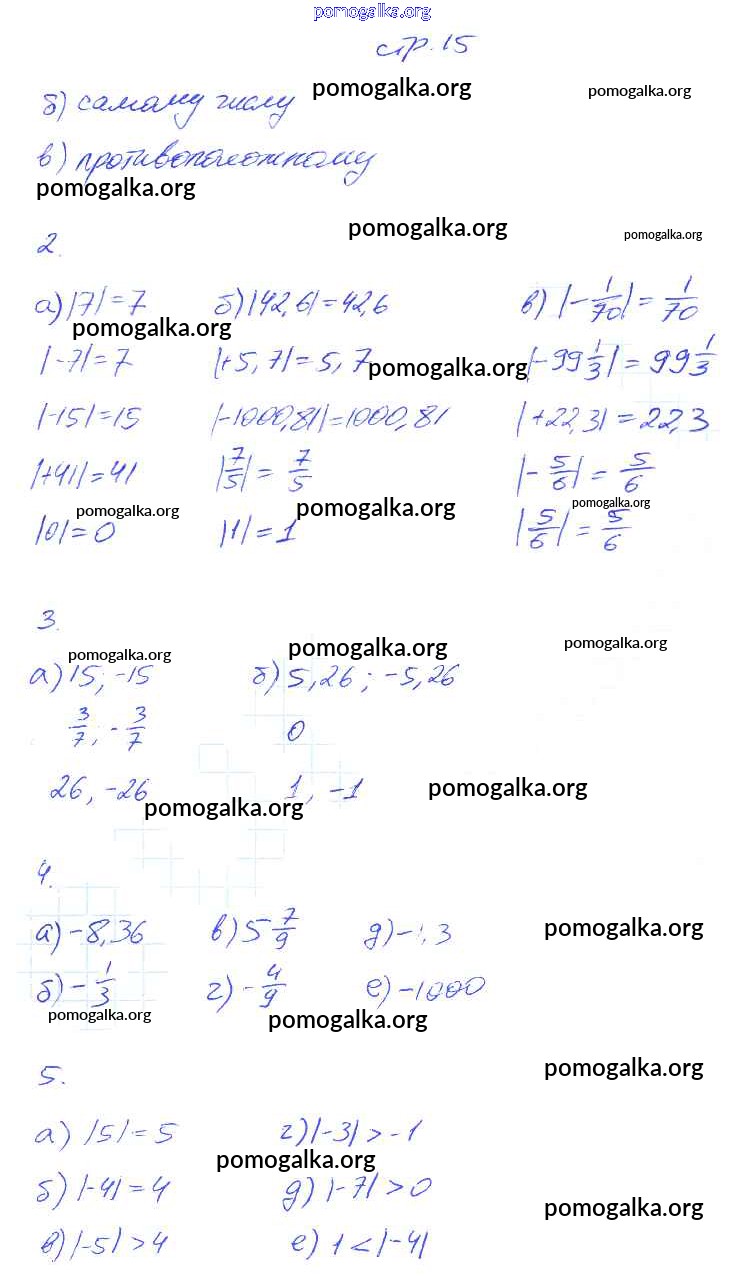 pomogalka.org
стр. 15
б) самому числу pomogalka.org pomogalka.org
в) противоположному
pomogalka.org
2. pomogalka.org pomogalka.org
а) |7| = 7 б) |42,6| = 42,6 в) |-1/70| = 1/70
pomogalka.org
|-7| = 7 |+5,7| = 5,7 pomogalka.org |-99 1/3| = 99 1/3
|-15| = 15 |-1000,81| = 1000,81 |+22,3| = 22,3
|+41| = 41 |7/5| = 7/5 |-5/6| = 5/6
pomogalka.org pomogalka.org pomogalka.org
|0| = 0 |1| = 1 |5/6| = 5/6
3.
pomogalka.org pomogalka.org pomogalka.org
а) 15; -15 б) 5,26; -5,26
3/7; -3/7 0
26, -26 1, -1 pomogalka.org
pomogalka.org
4.
а) -8,36 в) 5 7/9 д) - ,3 pomogalka.org
б) -1/3 г) -4/9 е) -1000
pomogalka.org pomogalka.org
5. pomogalka.org
а) |5| = 5 г) |-3| > -1
pomogalka.org
б) |-4| = 4 д) |-7| > 0
pomogalka.org
в) |-5| > 4 е) 1 < |-4|